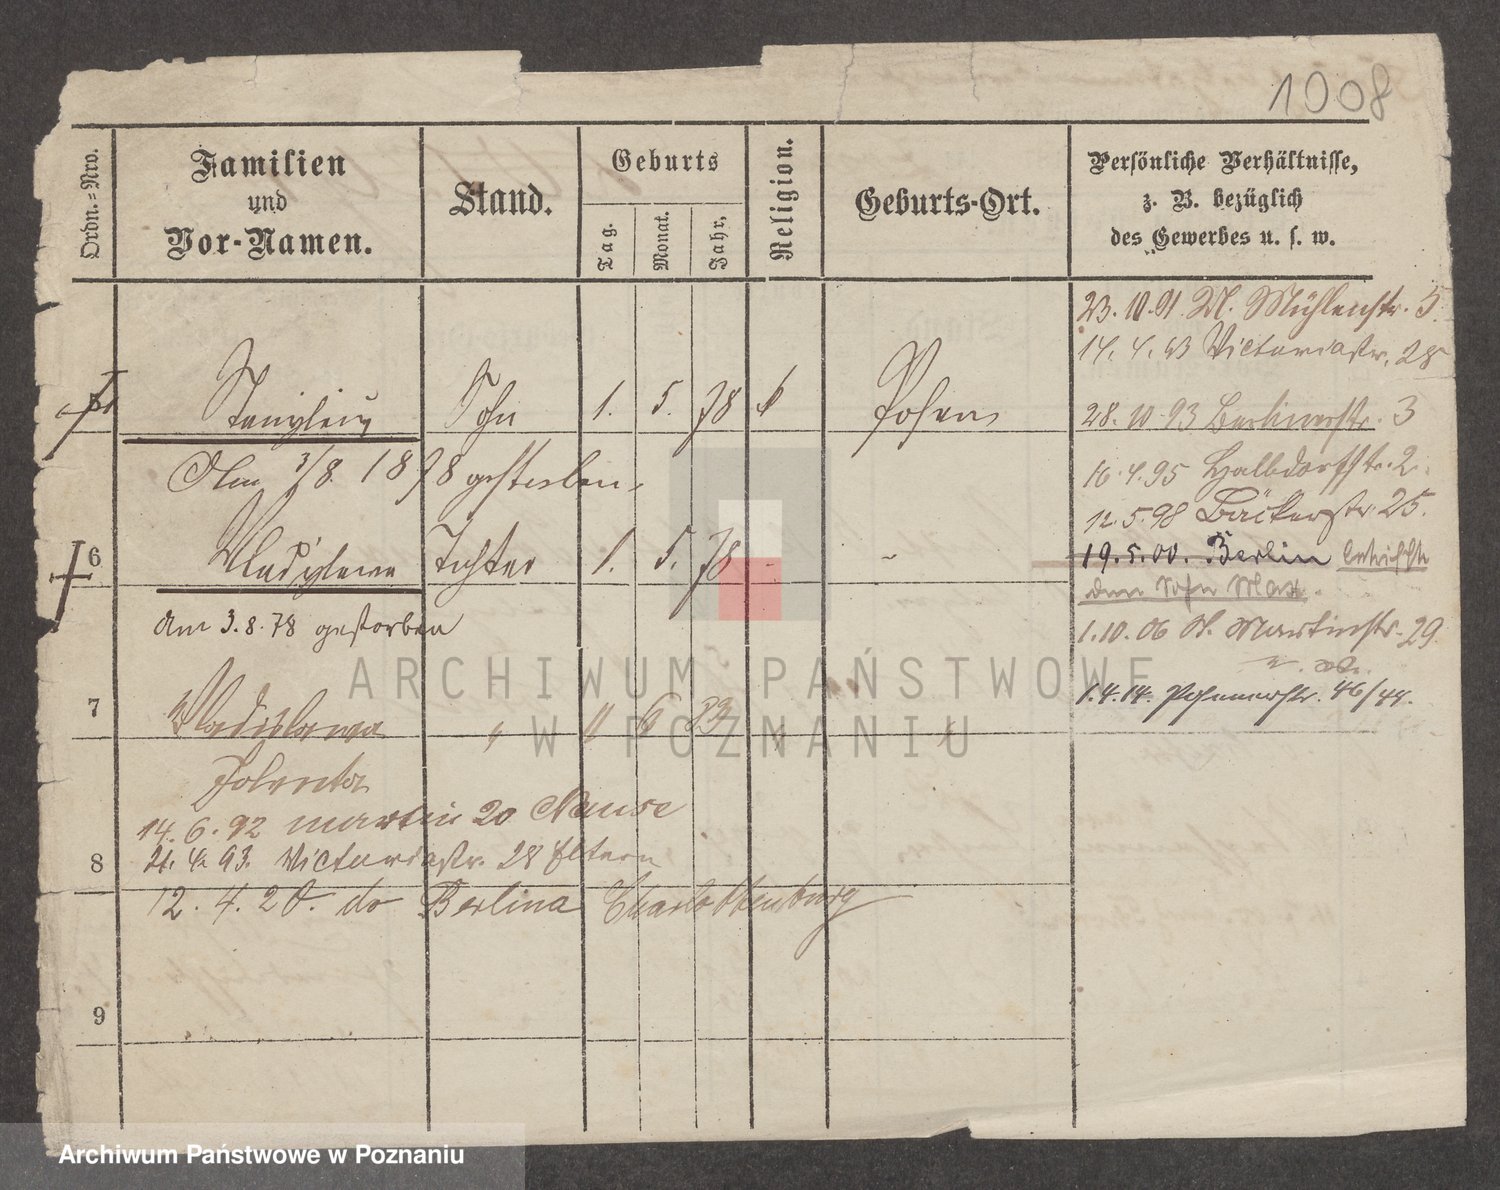 1008
Ordn.=Nro.
Familien
und
Vor-Namen.
Stand.
Geburts
Tag.
Monat.
Jahr,
Religion.
Geburts-Ort.
Persönliche Verhältnisse,
z. B. bezüglich
des Gewerbes u. s. w.
23. 10. 91. M. Mühlenstr. 5.
14. 4. 93 Victoriastr. 28
Stanislaus Sohn 1. 5. 78 k Posen
28. 10. 93 Berlinerstr. 3
Am 3/8. 1878 gestorben
16. 4. 95 Halbdorfstr. 2.
12. 5. 98 Bäckerstr. 25.
6 Wladislawa Tochter 1. 5. 78 -
19. 5. 00. Berlin betrifft
den Sohn Max.
am 3. 8. 78 gestorben
1. 10. 06 St. Martinstr. 29
7 Wladislawa " " 6 83 " "
1. 4. 14. Posenerstr. 46/44.
Jolenta
14. 6. 92 Martin 20
8 21. 4. 93. Victoriastr. 28 Eltern
12. 4. 20. do Berlina Charlottenburg
9
ARCHIWUM PAŃSTWOWE
W POZNANIU
Archiwum Państwowe w Poznaniu